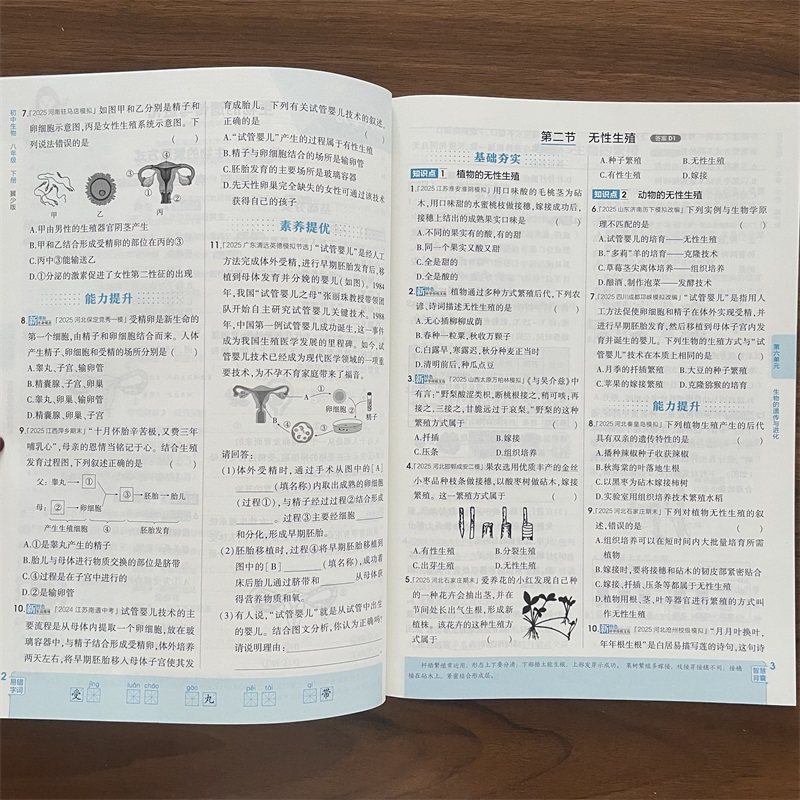 初中生物 八年级 下册 冀少版
7.「2025 河南驻马店模拟」如图甲和乙分别是精子和
卵细胞示意图,丙是女性生殖系统示意图。下
列说法错误的是 ( )
④
③
②
①
甲 乙 丙
A.甲由男性的生殖器官阴茎产生
B.甲和乙结合形成受精卵的部位在丙的③
C.丙中③能输送乙
D.①分泌的激素促进了女性第二性征的出现
能力提升
8.「2025 河北保定竞秀一模」受精卵是新生命的
第一个细胞,由精子和卵细胞结合而来。人体
产生精子、卵细胞和受精的场所分别是 ( )
A.睾丸、子宫、输卵管
B.精囊腺、子宫、卵巢
C.睾丸、卵巢、输卵管
D.精囊腺、卵巢、子宫
9.「2025 江西萍乡期末」“十月怀胎辛苦极,又费三年
哺乳心”,母亲的恩情当铭记于心。结合生殖
发育过程图,下列叙述正确的是 ( )
父:睾丸→①
③→胚胎→胎儿
母:②→卵细胞
产生生殖细胞 ④ 胚胎发育
A.①是睾丸产生的精子
B.胎儿与母体进行物质交换的部位是脐带
C.④过程是在子宫中进行的
D.②是输卵管
10.「2024 江苏南通中考」试管婴儿技术的主
要流程是从母体内提取一个卵细胞,放在玻
璃容器中,与精子结合形成受精卵,体外培养
两天左右,将早期胚胎移入母体子宫使其发
育成胎儿。下列有关试管婴儿技术的叙述,
正确的是 ( )
A.“试管婴儿”产生的过程属于有性生殖
B.精子与卵细胞结合的场所是输卵管
C.胚胎发育的主要场所是玻璃容器
D.先天性卵巢完全缺失的女性可通过该技术
获得自己的孩子
素养提优
11.「2025 广东清远英德模拟节选」“试管婴儿”是经人工
方法完成体外受精,进行早期胚胎发育后,移
植到母体发育并分娩的婴儿(如图)。1984
年,我国“试管婴儿之母”张丽珠教授带领团
队开始自主研究试管婴儿关键技术。1988
年,中国第一例试管婴儿成功诞生,这一事件
成为我国生殖医学发展的里程碑。如今,试
管婴儿技术已经成为现代医学领域的一项重
要技术,为不孕不育家庭带来了福音。
A ①
卵细胞 ②
精子
B ④ ③
请回答:
(1)体外受精时,通过手术从图中的[A]
(填名称)内取出成熟的卵细胞
(过程①),与精子经过过程②结合形成
。过程③主要经细胞
和分化,形成早期胚胎。
(2)胚胎移植时,过程④将早期胚胎移植到
图中的[B] (填名称),成功着
床后胎儿通过脐带和 从母体获
得营养物质和氧。
(3)有人说,“试管婴儿”就是从试管中出生
的婴儿。结合图文分析,你认为正确吗?
请说明理由:
2 易错字词
jīng
受
luán cháo
gāo
九
pēi tāi
qí
带
第二节 无性生殖 答案 D1
基础夯实
知识点 1 植物的无性生殖
1.「2025 江苏淮安淮阴模拟」用口味酸的毛桃茎为砧
木,用口味甜的水蜜桃枝做接穗,嫁接成功后,
接穗上结出的成熟果实口味是 ( )
A.不同的果实有的酸,有的甜
B.同一个果实又酸又甜
C.全是甜的
D.全是酸的
2. 植物通过多种方式繁殖后代,下列农
谚、诗词描述无性生殖的是 ( )
A.无心插柳柳成荫
B.春种一粒粟,秋收万颗子
C.白露早,寒露迟,秋分种麦正当时
D.清明前后,种瓜点豆
3.「2025 山西太原万柏林模拟」《与吴介兹》中
有言:“野梨酸涩类枳,断桃根接之,稍可啖;再
接之,三接之,甘脆远过于哀梨。”野梨的这种
繁殖方式属于 ( )
A.扦插 B.嫁接
C.压条 D.组织培养
4.「2025 河北邯郸成安二模」果农选用优质丰产的金丝
小枣品种枝条做接穗,以酸枣树做砧木,嫁接
繁殖。这一繁殖方式属于 ( )
A.有性生殖 B.分裂生殖
C.出芽生殖 D.无性生殖
5.「2025 河北石家庄期末」爱养花的小红发现自己种
的一种花卉会抽出茎,并在
节间处长出气生根,形成新
植株。该花卉的这种生殖方
式属于 ( )
A.种子繁殖 B.无性生殖
C.有性生殖 D.嫁接
知识点 2 动物的无性生殖
6.「2025 山东济南历下模拟改编」下列实例与生物学原
理不匹配的是 ( )
A.试管婴儿的培育——无性生殖
B.“多莉”羊的培育——克隆技术
C.草莓茎尖离体培养——组织培养
D.酿酒、制作泡菜——发酵技术
7.「2025 四川成都邛崃模拟改编」“试管婴儿”是指用人
工方法促使卵细胞和精子在体外实现受精,并
进行早期胚胎发育,然后移植到母体子宫内发
育并诞生的婴儿。下列生物的生殖方式与“试
管婴儿”技术在本质上相同的是 ( )
A.月季的扦插繁殖 B.大豆的种子繁殖
C.苹果的嫁接繁殖 D.克隆猕猴的培育
能力提升
8.「2025 河北秦皇岛模拟」下列植物生殖产生的后代
具有双亲的遗传特性的是 ( )
A.播种辣椒种子收获辣椒
B.秋海棠的叶落地生根
C.以黑枣为砧木嫁接柿树
D.实验室用组织培养技术繁殖水稻
9.「2025 河北石家庄期末」下列对植物无性生殖的叙
述,错误的是 ( )
A.组织培养可以在短时间内大批量培育所需
植物
B.嫁接时,要将接穗和砧木的韧皮部紧密贴合
C.嫁接、扦插、压条等都属于无性生殖
D.植物用根、茎、叶等器官进行繁殖的方式叫
作无性生殖
10.「2025 河北沧州校级模拟」“月月叶换叶,
年年根生根”是白居易描写莲的诗句,这句诗
第六单元
生物的遗传与进化
扦插繁殖常运用,形态上下要分清;下部插土能生根,上部发芽示成功。果树繁殖多嫁接,枝接芽接穗不同;接穗
接在砧木上,紧密结合形成层。
智慧背囊 3